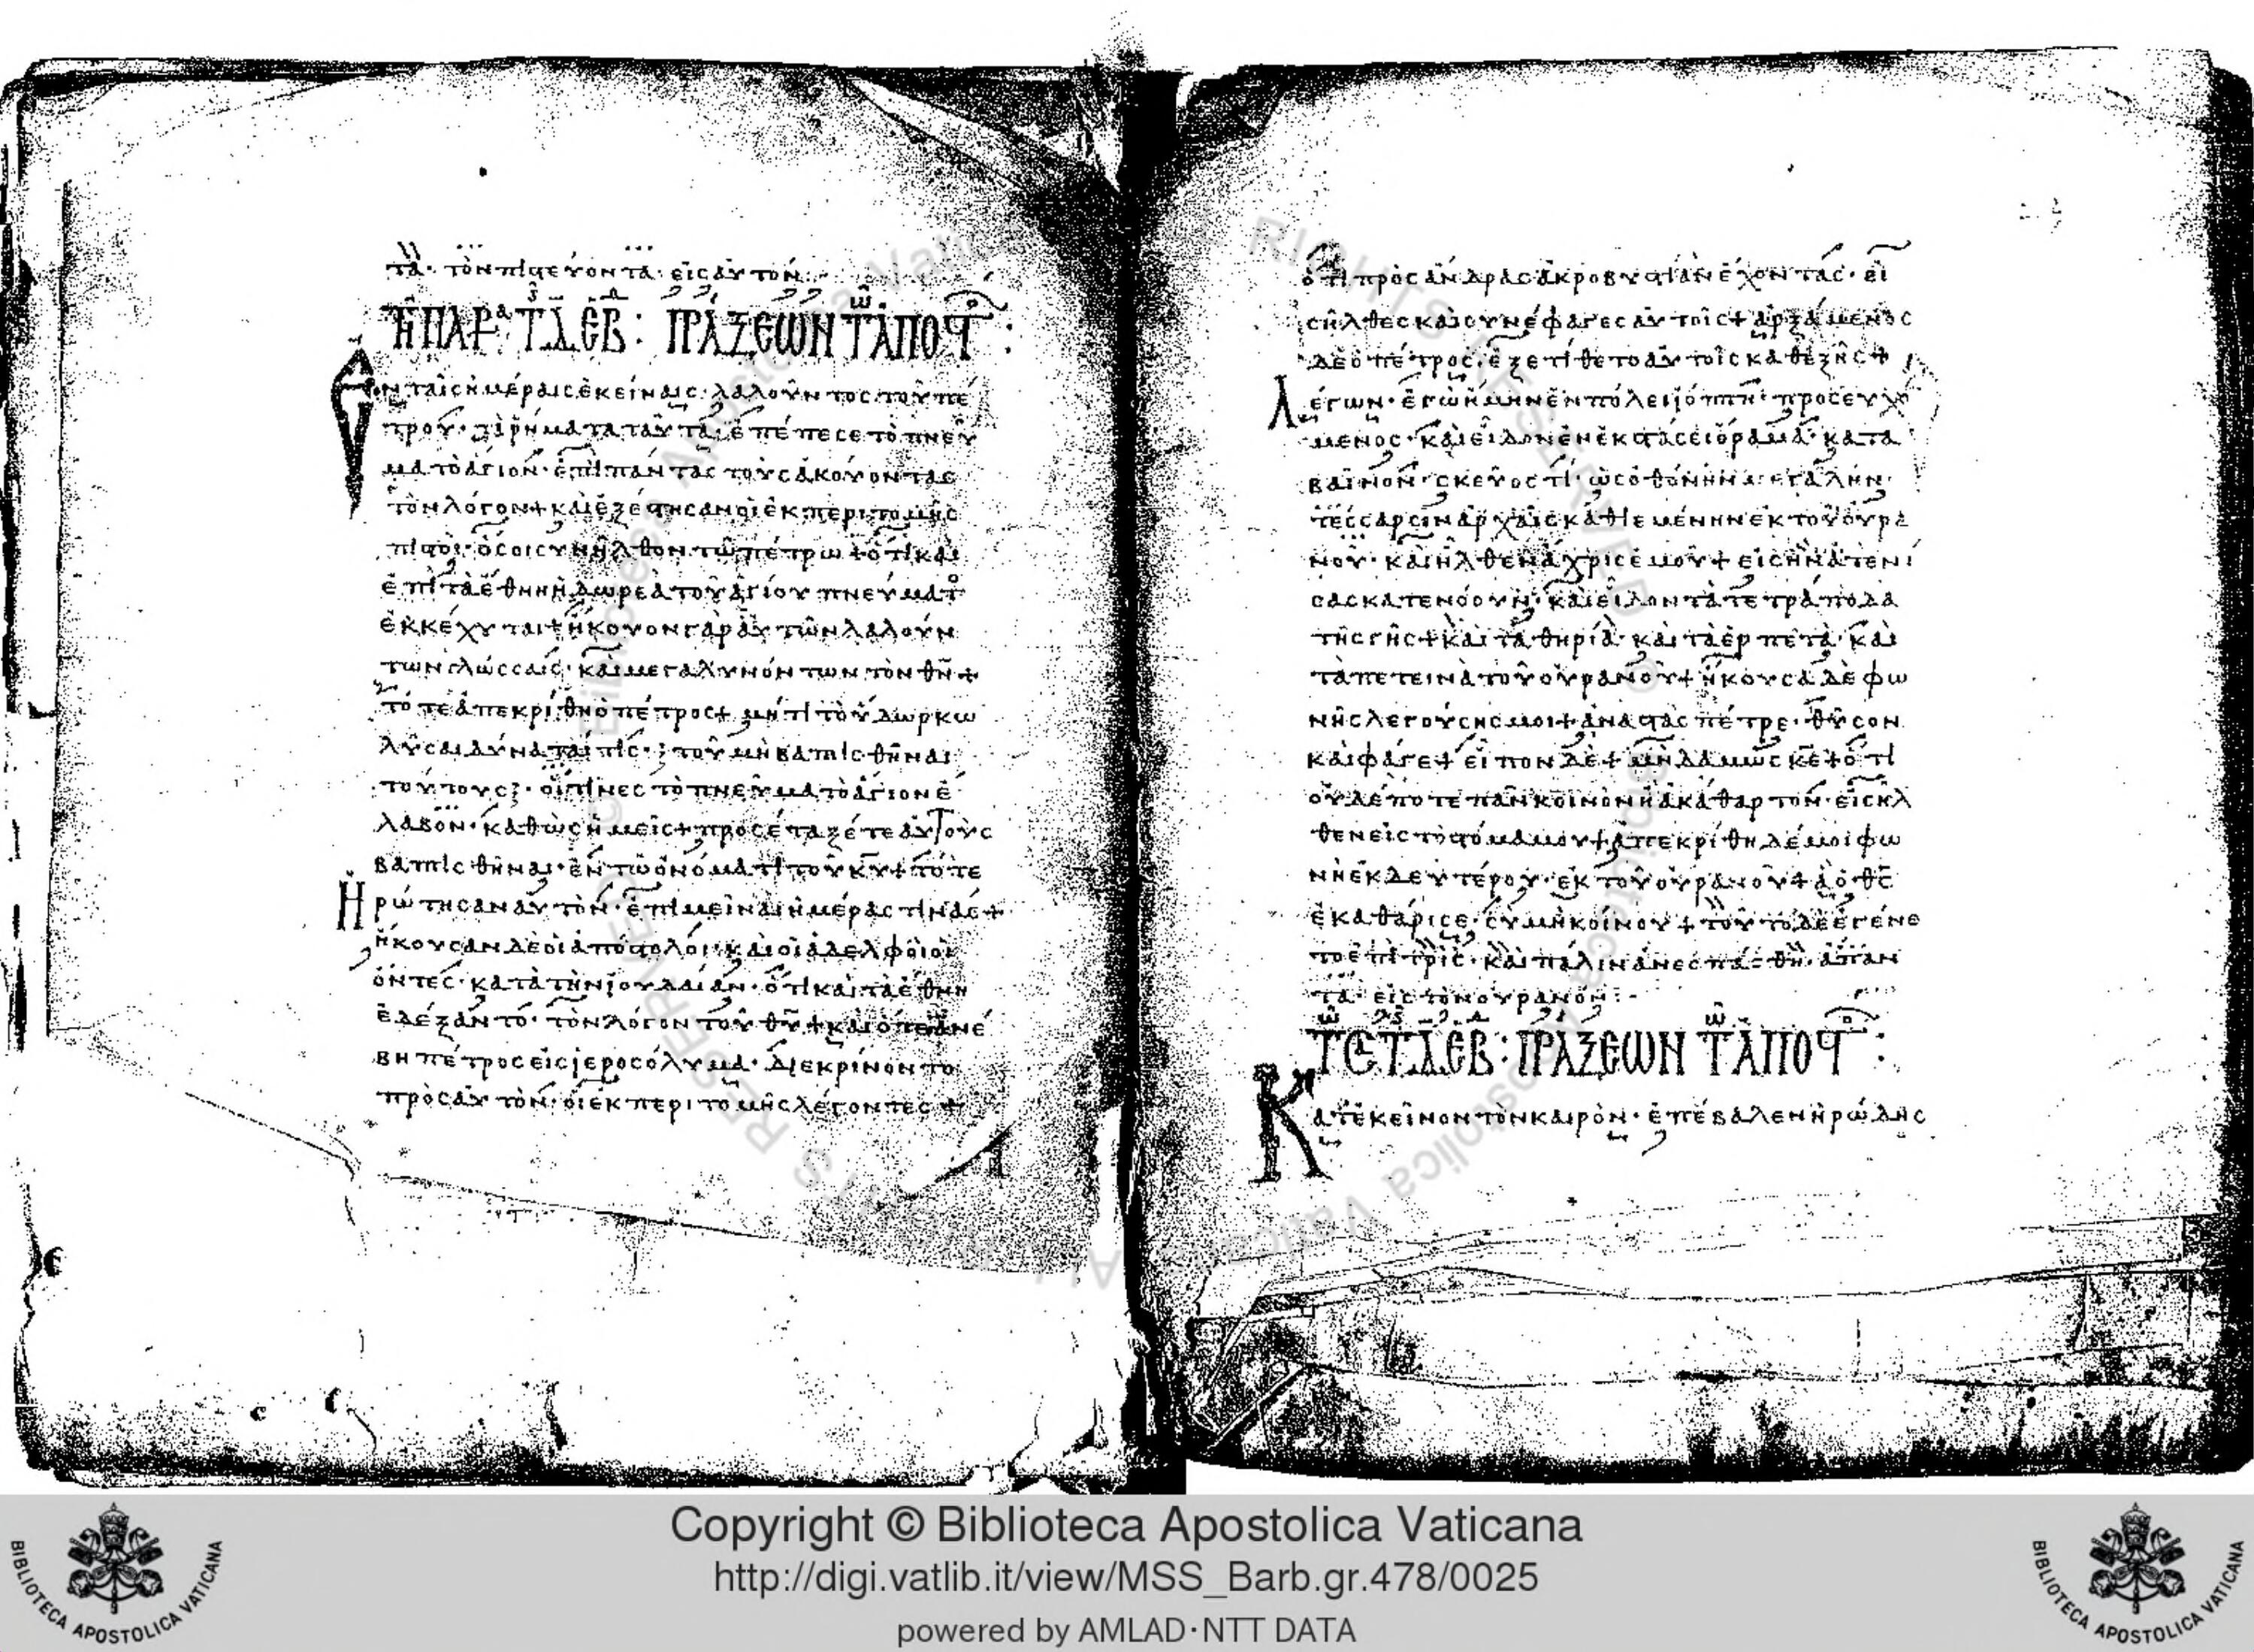 τα· τὸν πιστεύοντα εἰς αὐτόν:
Τῇ παρ τ δ ἑβ: πράξεων τ ἀποστ:
Ἐν ταῖς ἡμέραις ἐκείναις· λαλοῦντος τοῦ πέ
τρου· τὰ ῥήματα ταῦτα· ἐπέπεσε τὸ πνεῦ
μα τὸ ἅγιον· ἐπὶ πάντας τοὺς ἀκούοντας
τὸν λόγον + καὶ ἐξέστησαν οἱ ἐκ περιτομῆς
πιστοί· ὅσοι συνῆλθον τῶ πέτρω + ὅτι καὶ
ἐπὶ τὰ ἔθνη ἡ δωρεὰ τοῦ ἁγίου πνεύματο
ἐκκέχυται + ἤκουον γὰρ αὐτῶν λαλούν
των γλώσσαις· καὶ μεγαλυνόντων τὸν θν +
τότε ἀπεκρίθη ὁ πέτρος + μήτι τὸ ὕδωρ κω
λῦσαι δύναταί τις· τοῦ μὴ βαπτισθῆναι
τούτους; οἵτινες τὸ πνεῦμα τὸ ἅγιον ἔ
λαβον· καθὼς ἡμεῖς + προσέταξέ τε αὐτοὺς
βαπτισθῆναι· ἐν τῶ ὀνόματι τοῦ κυ + τότε
Ἠρώτησαν αὐτὸν· ἐπιμεῖναι ἡμέρας τινάς +
ἤκουσαν δὲ οἱ ἀπόστολοι· καὶ οἱ ἀδελφοὶ οἱ
ὄντες· κατὰ τὴν ἰουδαίαν· ὅτι καὶ τὰ ἔθνη
ἐδέξαντο· τὸν λόγον τοῦ θυ + καὶ ὅτε ἀνέ
βη πέτρος εἰς ἱεροσόλυμα· διεκρίνοντο
πρὸς αὐτὸν· οἱ ἐκ περιτομῆς λέγοντες +
ὅτι πρὸς ἄνδρας ἀκροβυστίαν ἔχοντας· εἰ
σῆλθες καὶ συνέφαγες αὐτοῖς + ἀρξάμενος
δὲ ὁ πέτρος· ἐξετίθετο αὐτοῖς καθεξῆς +
Λέγων· ἐγὼ ἤμην ἐν πόλει ἰόππη· προσευχό
μενος· καὶ εἶδον ἐν ἐκστάσει ὅραμα· κατα
βαῖνον· σκεῦος τί· ὡς ὀθόνην μεγάλην·
τέσσαρσιν ἀρχαῖς καθιεμένην ἐκ τοῦ οὐρα
νοῦ· καὶ ἦλθεν ἄχρις ἐμοῦ + εἰς ἣν ἀτενί
σας κατενόουν· καὶ εἶδον τὰ τετράποδα
τῆς γῆς + καὶ τὰ θηρία· καὶ τὰ ἑρπετά· καὶ
τὰ πετεινὰ τοῦ οὐρανοῦ + ἤκουσα δὲ φω
νῆς λεγούσης μοι + ἀναστὰς πέτρε· θῦσον
καὶ φάγε + εἶπον δὲ + μηδαμῶς κε + ὅτι
οὐδέποτε πᾶν κοινὸν ἢ ἀκάθαρτον· εἰσῆλ
θεν εἰς τὸ στόμα μου + ἀπεκρίθη δέ μοι φω
νὴ ἐκ δευτέρου· ἐκ τοῦ οὐρανοῦ + ἃ ὁ θς
ἐκαθάρισε· σὺ μὴ κοίνου + τοῦτο δὲ ἐγένε
το ἐπὶ τρίς· καὶ πάλιν ἀνεσπάσθη· ἅπαν
τα· εἰς τὸν οὐρανόν:-
Τ ς τ δ ἑβ: πράξεων τ ἀποστ:
Κατ' ἐκεῖνον τὸν καιρὸν· ἐπέβαλεν ἡρώδης
Copyright © Biblioteca Apostolica Vaticana
http://digi.vatlib.it/view/MSS_Barb.gr.478/0025
powered by AMLAD·NTT DATA
BIBLIOTECA APOSTOLICA VATICANA
BIBLIOTECA APOSTOLICA VATICANA